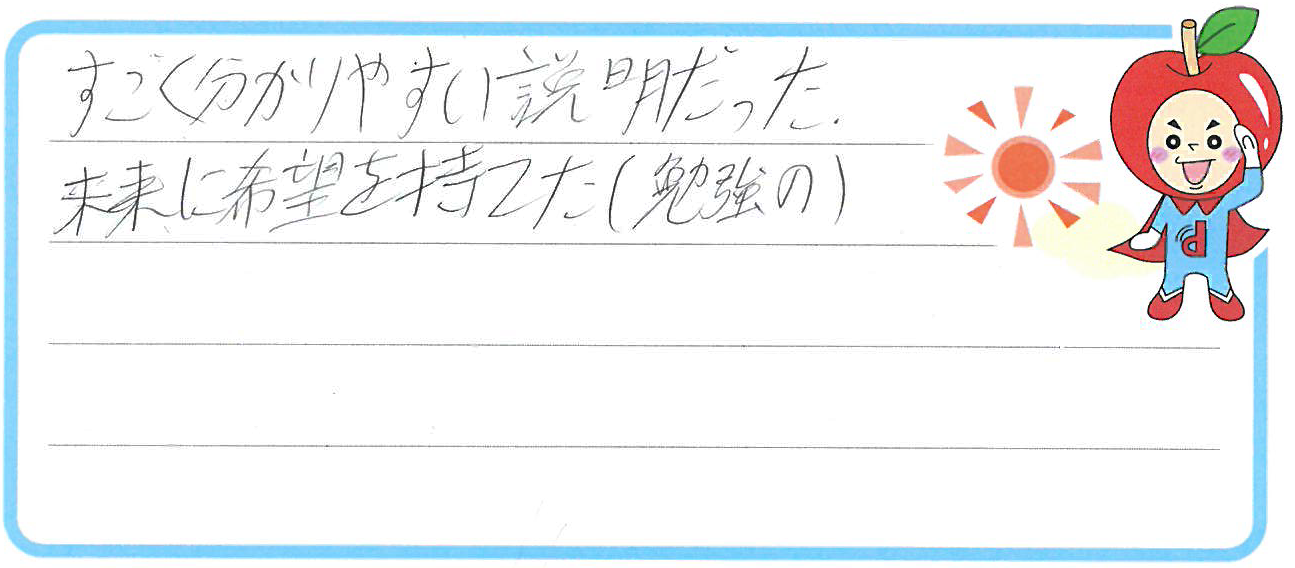 すごく分かりやすい説明だった.
未来に希望を持てた(勉強の)